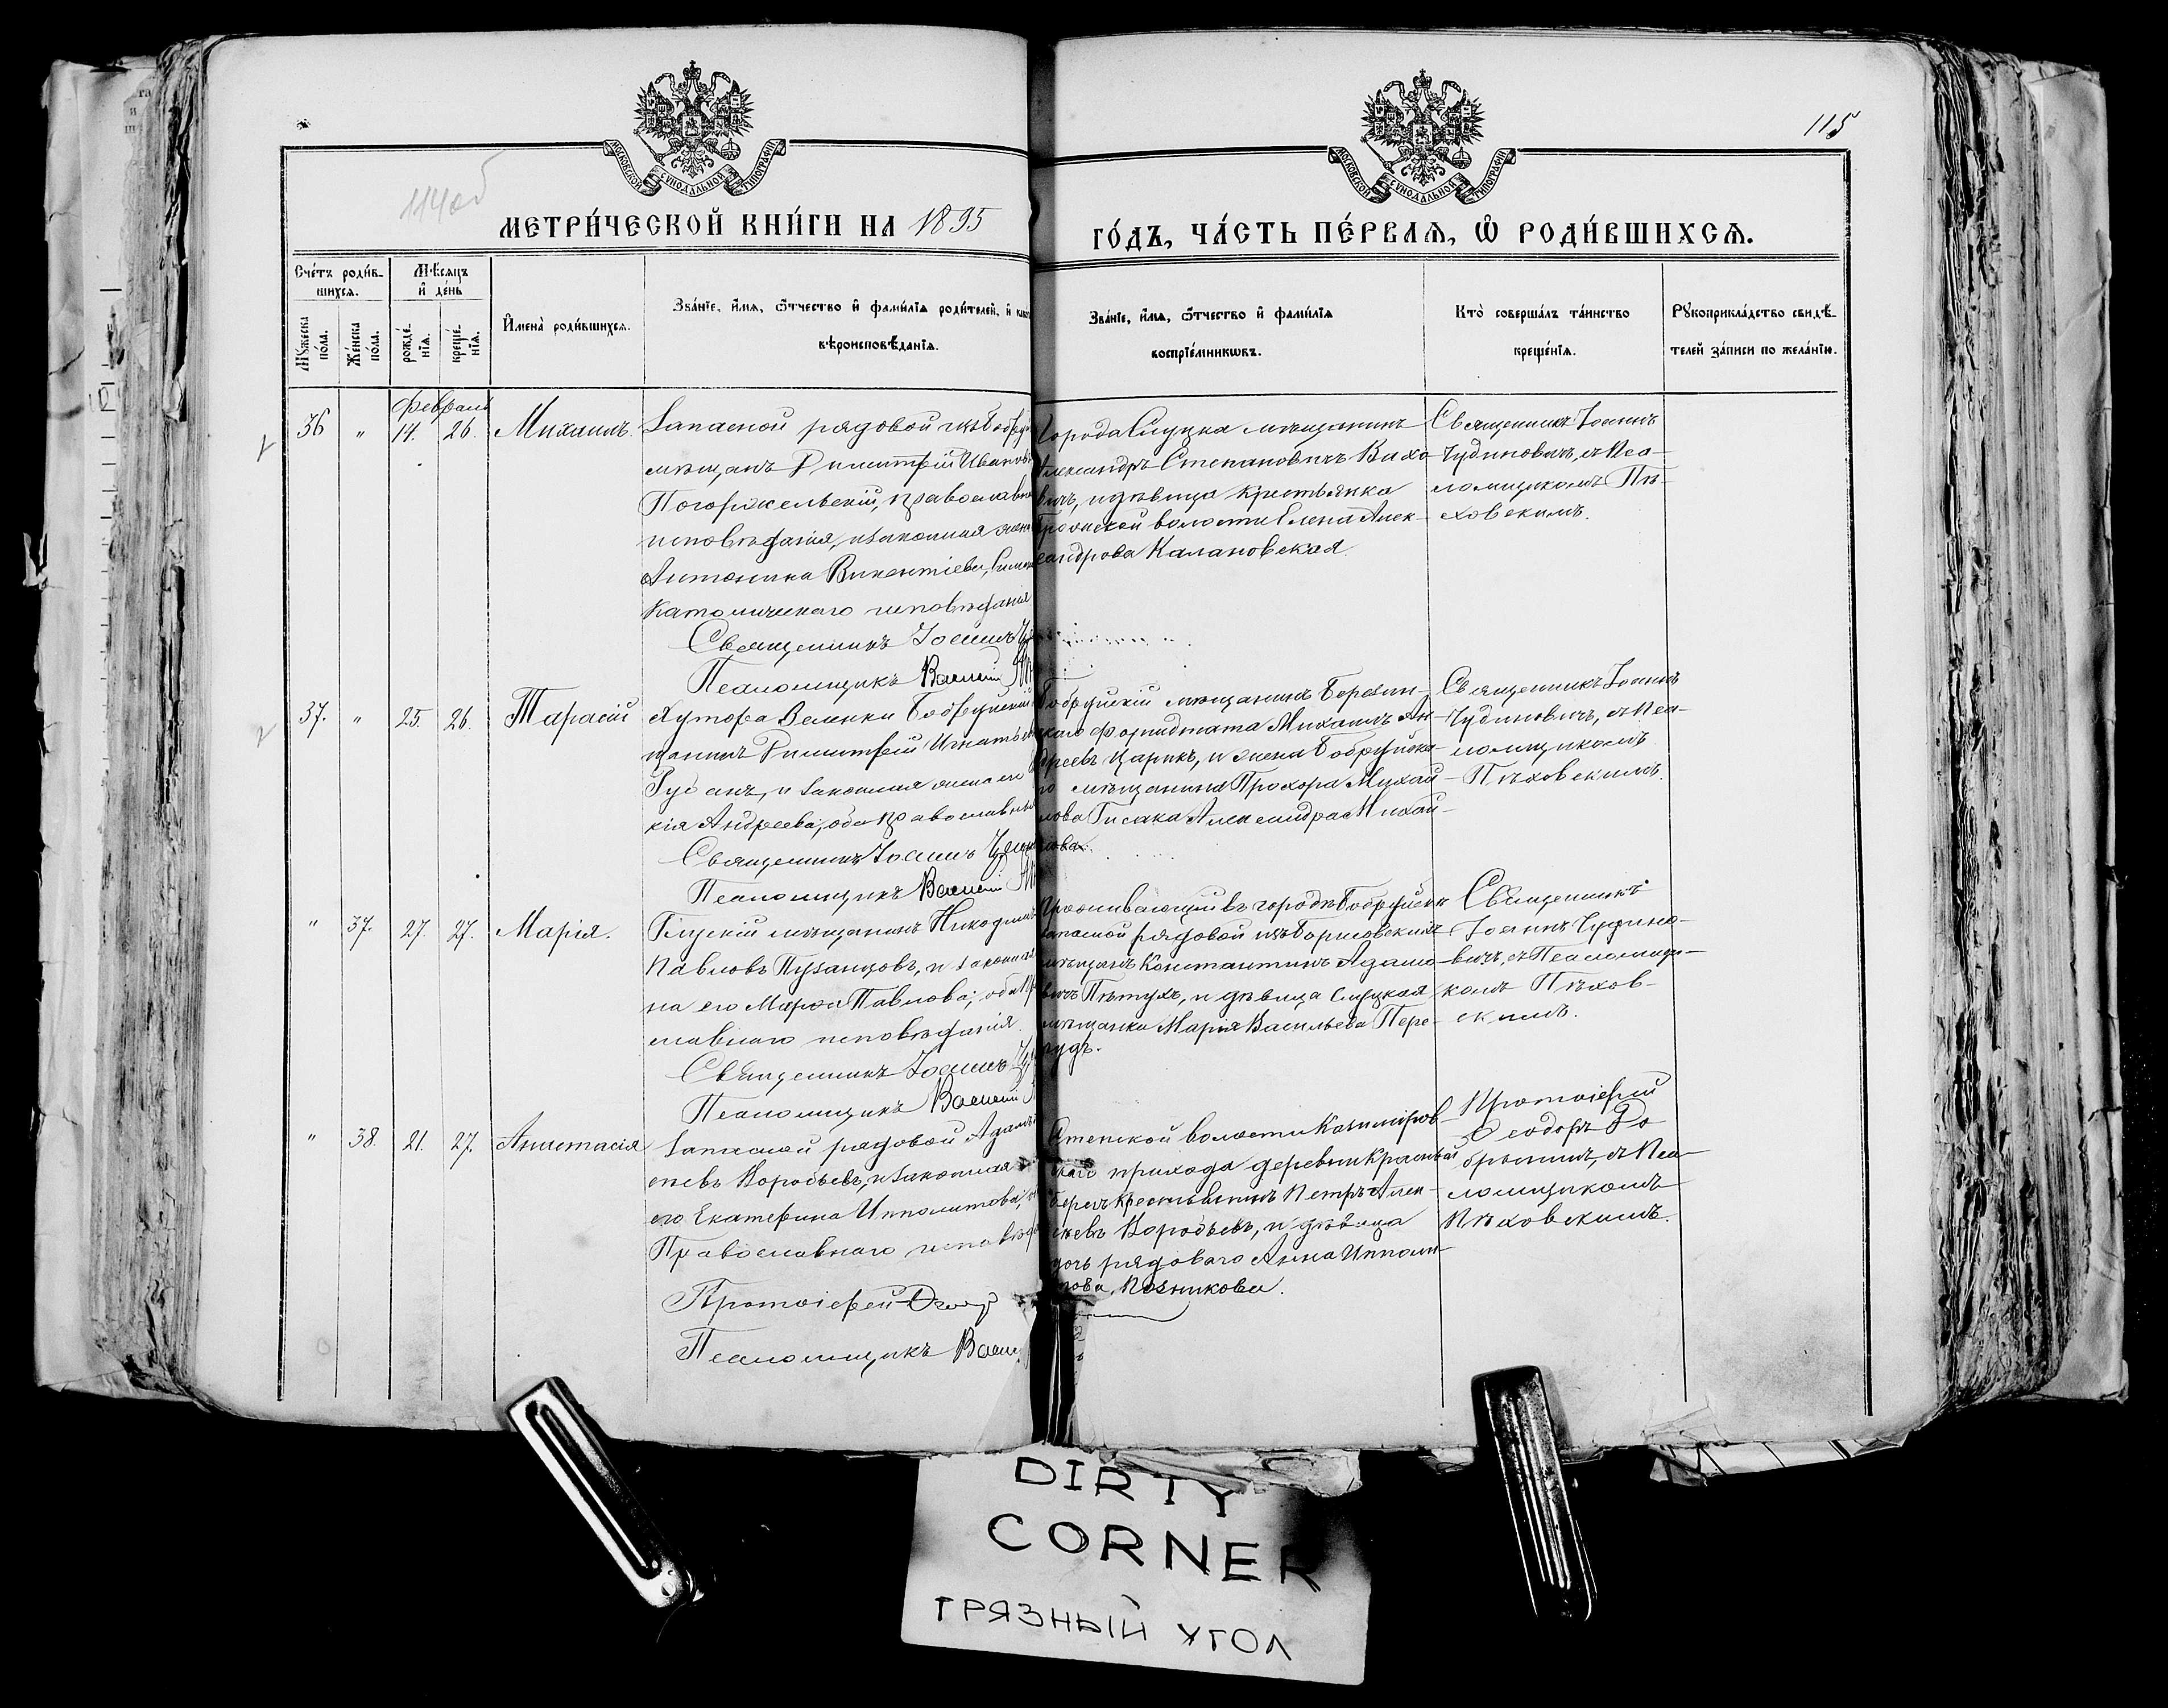 115
114об
МОСКОВСКОЙ СѴНОДАЛЬНОЙ ТИПОГРАФІИ
МОСКОВСКОЙ СѴНОДАЛЬНОЙ ТИПОГРАФІИ
МЕТРИ́ЧЕСКОЙ КНИ́ГИ НА 1895
ГО́ДЪ, ЧА́СТЬ ПЕ́РВАѦ, Ѡ РОДИ́ВШИХСѦ.
Сче́тъ роди́в-
шихсѧ.
Мѣсѧцъ
и҆ де́нь
Мꙋжеска
по́ла.
Же́нска
по́ла.
рожде́-
нїѧ.
креще́-
нїѧ.
И҆мена̀ роди́вшихсѧ.
Зва́нїе, и҆́мѧ, ѻ҆́тчество и҆ фами́лїѧ роди́телей, и҆
вѣроисповѣ́данїѧ.
Зва́нїе, и҆́мѧ, ѻ҆́тчество и҆ фами́лїѧ
воспрїе́мникѡвъ.
Кто̀ соверша́лъ та́инство
креще́нїѧ.
Рꙋкоприкла́дство свидѣ́-
телей за́писи по жела́нїю.
Февраль
36 " 14. 26. Михаилъ.
Запасной рядовой изъ Бобруй
мѣщанъ Димитрій Иванов
Погоржельскій, православна
исповѣданія, и законная жен
Антонина Викентіева, Римско
Католическаго исповѣданія
Священникъ Іоаннъ
Псаломщикъ Василій
Города Слуцка мѣщанинъ
Александръ Степановичъ Вихо-
вичъ, и дѣвица крестьянка
волости Елена Алек-
сандрова Калановская.
Священникъ Іоаннъ
Чудиновичъ, съ Пса-
ломщикомъ Пѣ-
ховскимъ.
37. " 25. 26. Тарасій
Хутора Веленки Бобруйскій
щанинъ Димитрій Игнатьев
Гусакъ, и законная жена его
кія Андреева, оба православны
Священникъ Іоаннъ
Псаломщикъ Василій
Бобруйскій мѣщанинъ Березин-
скаго форштата Михаилъ Ан-
дреевъ Царикъ, и жена Бобруйска-
го мѣщанина Прохора Михай-
лова Гисака Александра Михай-
лова.
Священникъ Іоаннъ
Чудиновичъ, съ Пса-
ломщикомъ
Пѣховскимъ.
" 37. 27. 27. Марія.
Глускій мѣщанинъ Никодимъ
Павловъ Пузанцовъ, и законная
на его Марѳа Павлова, оба пр
славнаго исповѣданія.
Священникъ Іоаннъ
Псаломщикъ Василій
Проживающій въ городѣ Бобруйскѣ
запасной рядовой изъ Борисовскихъ
мѣщанъ Константинъ Адамо-
вичъ Пѣтухъ, и дѣвица Слуцкая
мѣщанка Марія Васильева Пере-
гудъ.
Священникъ
Іоаннъ Чудино-
вичъ, съ Псаломщи-
комъ Пѣхов-
скимъ.
" 38. 21. 27. Анастасія
Запасной рядовой Адамъ
сѣевъ Воробьевъ, и законная
его Екатерина Ипполитова,
Православнаго исповѣд
Протоіерей
Псаломщикъ Васил
Степской волости Казимиров-
скаго прихода деревни Красный
Берегъ крестьянинъ Петръ Алек-
сѣевъ Воробьевъ, и дѣвица
дочь рядоваго Анна Ипполи-
това, Позникова.
Протоіерей
Ѳеодоръ До-
брынинъ, съ Пса-
ломщикомъ
Пѣховскимъ.
DIRTY
CORNER
ГРЯЗНЫЙ УГОЛ